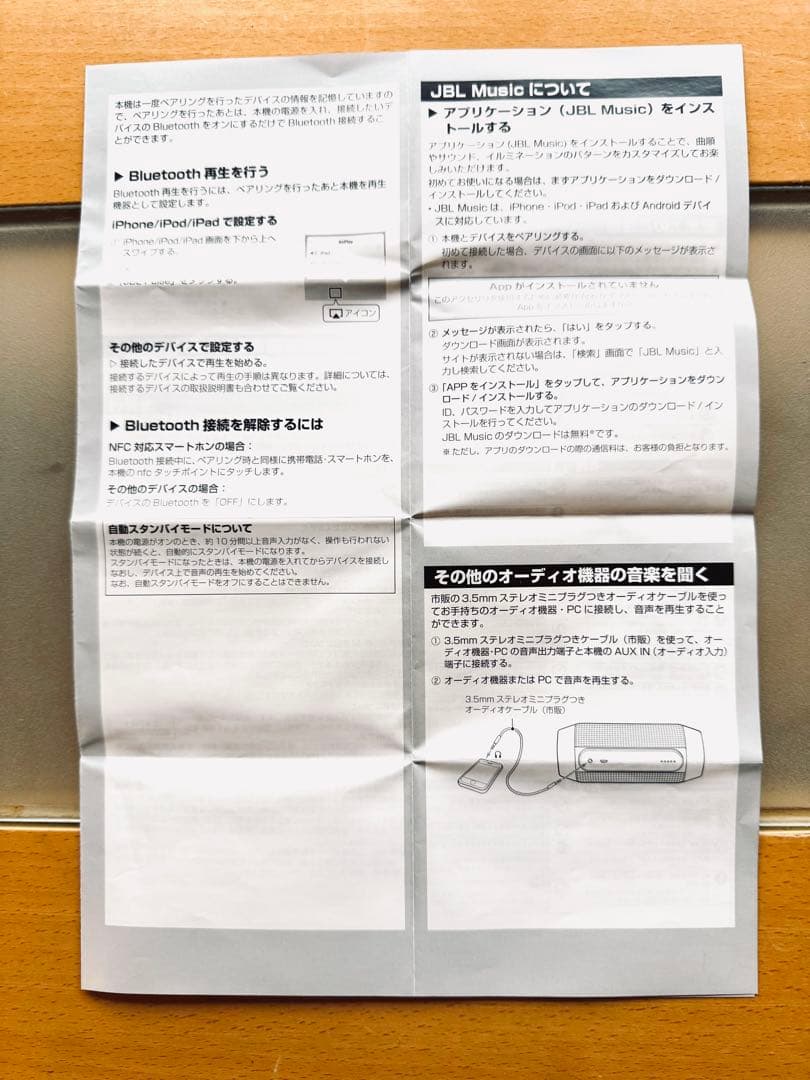 本機は一度ペアリングを行ったデバイスの情報を記憶していますの
で、ペアリングを行ったあとは、本機の電源を入れ、接続したいデ
バイスのBluetoothをオンにするだけでBluetooth接続するこ
とができます。
▶ Bluetooth 再生を行う
Bluetooth再生を行うには、ペアリングを行ったあと本機を再生
機器として設定します。
iPhone/iPod/iPadで設定する
① iPhone/iPod/iPad画面を下から上へ
スワイプする。
AirPlay
アイコン
その他のデバイスで設定する
▷ 接続したデバイスで再生を始める。
接続するデバイスによって再生の手順は異なります。詳細については、
接続するデバイスの取扱説明書も合わせてご覧ください。
▶ Bluetooth 接続を解除するには
NFC 対応スマートホンの場合：
Bluetooth接続中に、ペアリング時と同様に携帯電話・スマートホンを、
本機のnfcタッチポイントにタッチします。
その他のデバイスの場合：
デバイスのBluetoothを「OFF」にします。
自動スタンバイモードについて
本機の電源がオンのとき、約10分間以上音声入力がなく、操作も行われない
状態が続くと、自動的にスタンバイモードになります。
スタンバイモードになったときは、本機の電源を入れてからデバイスを接続し
なおし、デバイス上で音声の再生を始めてください。
なお、自動スタンバイモードをオフにすることはできません。
JBL Music について
▶ アプリケーション（JBL Music）をインス
トールする
アプリケーション(JBL Music)をインストールすることで、曲順
やサウンド、イルミネーションのパターンをカスタマイズしてお楽
しみいただけます。
初めてお使いになる場合は、まずアプリケーションをダウンロード /
インストールしてください。
・JBL Musicは、iPhone・iPod・iPadおよびAndroidデバイ
スに対応しています。
① 本機とデバイスをペアリングする。
初めて接続した場合、デバイスの画面に以下のメッセージが表示さ
れます。
Appがインストールされていません
② メッセージが表示されたら、「はい」をタップする、
ダウンロード画面が表示されます。
サイトが表示されない場合は、「検索」画面で「JBL Music」と入
力し検索してください。
③「APPをインストール」をタップして、アプリケーションをダウン
ロード / インストールする。
ID、パスワードを入力してアプリケーションのダウンロード / イン
ストールを行ってください。
JBL Musicのダウンロードは無料*です。
※ ただし、アプリのダウンロードの際の通信料は、お客様の負担となります。
その他のオーディオ機器の音楽を聞く
市販の3.5mmステレオミニプラグつきオーディオケーブルを使っ
てお手持ちのオーディオ機器・PCに接続し、音声を再生すること
ができます。
① 3.5mmステレオミニプラグつきケーブル（市販）を使って、オー
ディオ機器・PCの音声出力端子と本機のAUX IN（オーディオ入力）
端子に接続する。
② オーディオ機器またはPCで音声を再生する。
3.5mmステレオミニプラグつき
オーディオケーブル（市販）